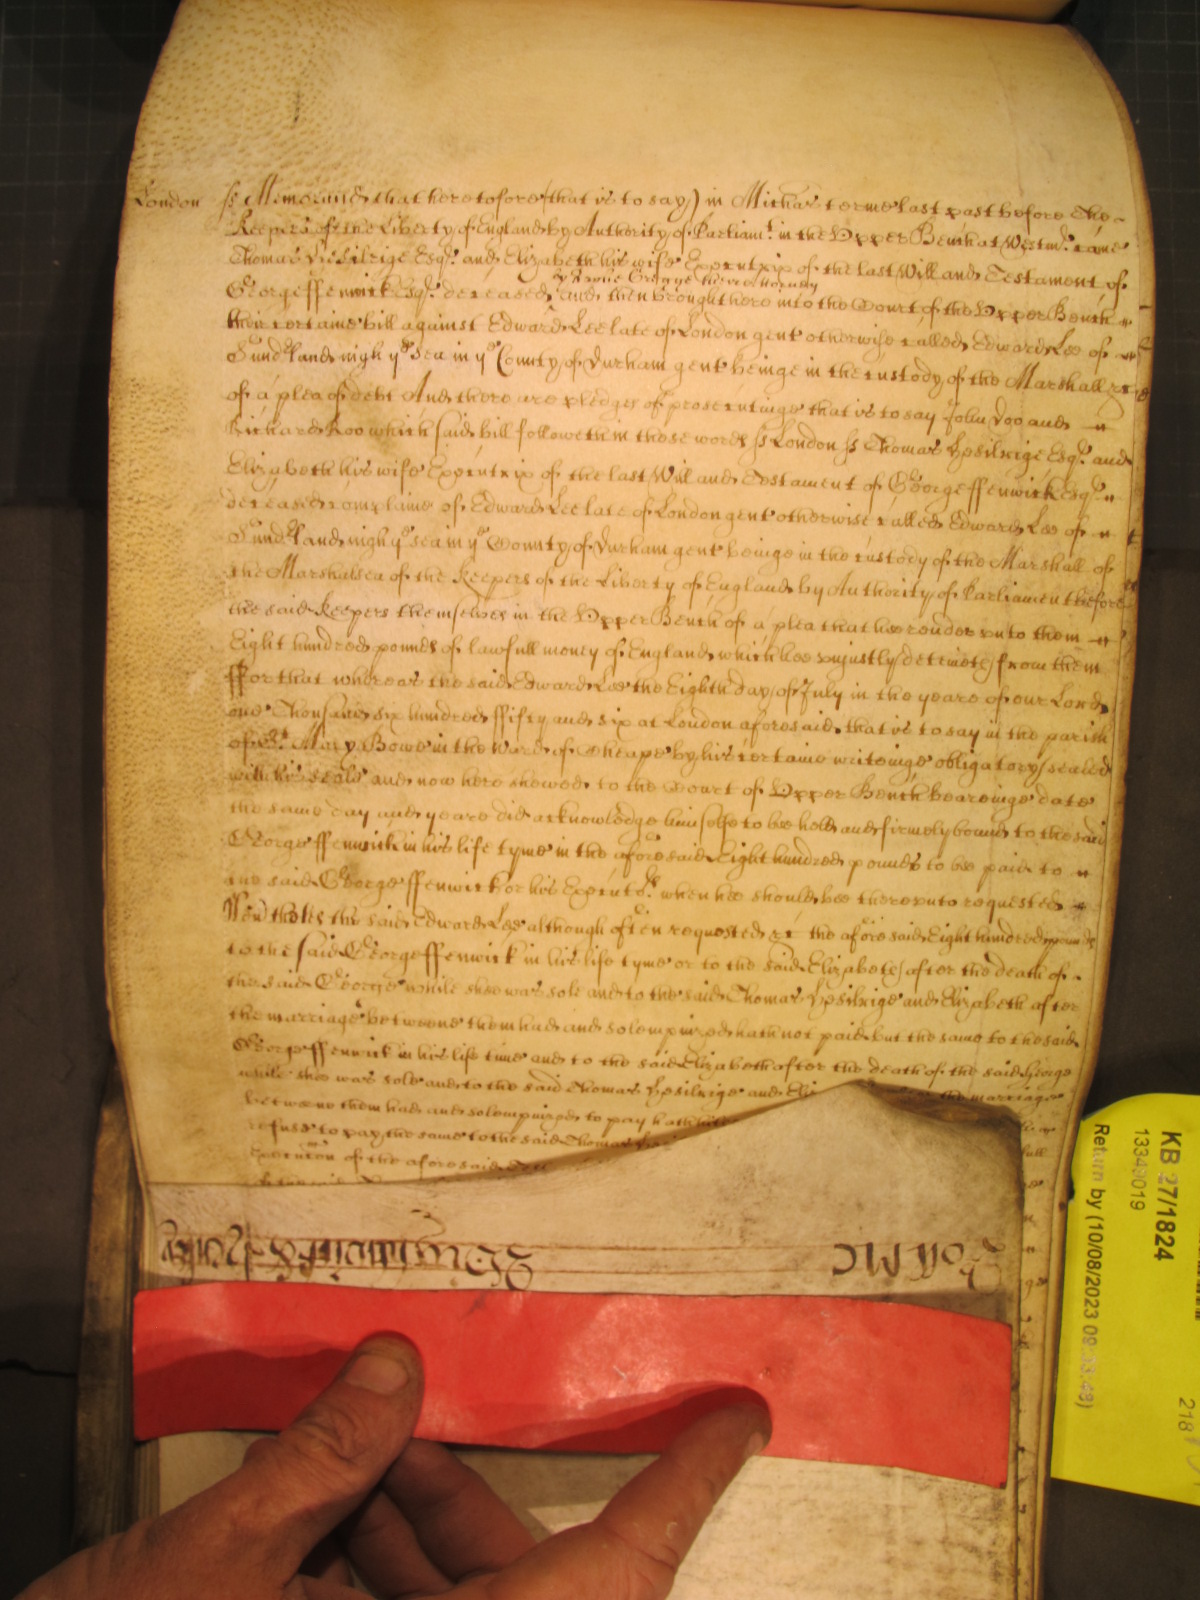 London ss Memorand that heretofore (that is to say) in Michas terme last past before the
Keepers of the Liberty of England by Authority of Parliamt in the Upper Bench at Westmr came
Thomas Hesilrige Esqr and Elizabeth his wife Executrix of the last Will and Testament of
by George their Attorney
George ffenwick Esqr deceased and then brought here into the Court of the Upper Bench
their certaine bill against Edward Lee late of London gent otherwise called Edward Lee of
Sunderland nigh ye sea in ye County of Durham gent beinge in the custody of the Marshall &c
of a plea of debt And there are pledges of prosecutinge that is to say John Doo and
Richard Roo which said bill followeth in these words ss London ss Thomas Hesilrige Esqr and
Elizabeth his wife Executrix of the last Will and Testament of George ffenwick Esqr
deceased complaine of Edward Lee late of London gent otherwise called Edward Lee of
Sunderland nigh ye sea in ye County of Durham gent beinge in the custody of the Marshall of
the Marshalsea of the Keepers of the Liberty of England by Authority of Parliament before
the said Keepers themselves in the Upper Bench of a plea that hee render unto them
Eight hundred pounds of lawfull money of England which hee unjustly deteineth from them
ffor that whereas the said Edward Lee the Eighth day of July in the yeare of our Lord
one Thousand six hundred ffifty and six at London aforesaid that is to say in the parish
of St Mary Bowe in the Ward of Cheape by his certaine writeinge obligatory sealed
with his seale and now here shewed to the Court of Upper Bench beareinge date
the same day and yeare did acknowledge himselfe to bee held and firmely bound to the said
George ffenwick in his life tyme in the aforesaid Eight hundred pounds to bee paid to
the said George ffenwick or his Executors when hee should bee thereunto requested
Neverthelesse the said Edward Lee although often requested &c the aforesaid Eight hundred pounds
to the said George ffenwick in his life tyme or to the said Elizabeth after the death of
the said George while shee was sole and to the said Thomas Hesilrige and Elizabeth after
the marriage betweene them had and solempnized hath not paid but the same to the said
George ffenwick in his life time and to the said Elizabeth after the death of the said George
while shee was sole and to the said Thomas Hesilrige and Eli the marriage
betweene them had and solempnized to pay hath
refuse to pay the same to the said Thomas
of the aforesaid
KB 27/1824
13349019
Return by (10/08/2023 09:33:49)